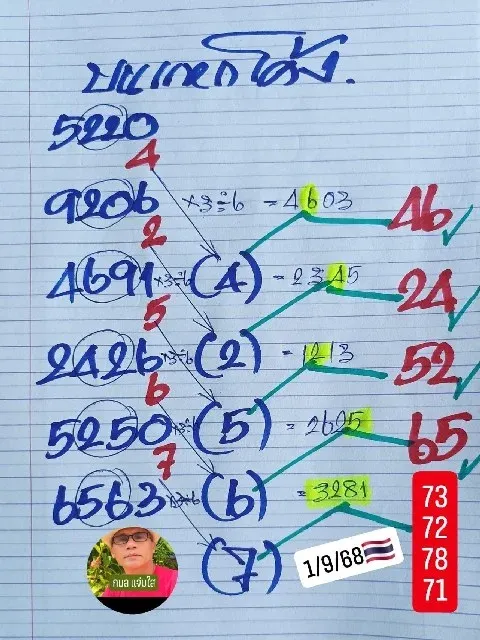 บนแกกโค้ง.
5220
4
9206 ×3÷6 = 4603 46
2
4691 ×3÷6 (4) = 2345 24
5
2426 ×3÷6 (2) = 1213 52
6
5250 ×3÷6 (5) = 2625 65
7
6563 ×3÷6 (6) = 3281 73
72
(7) 1/9/68 78
71
กบล แจ่มใส